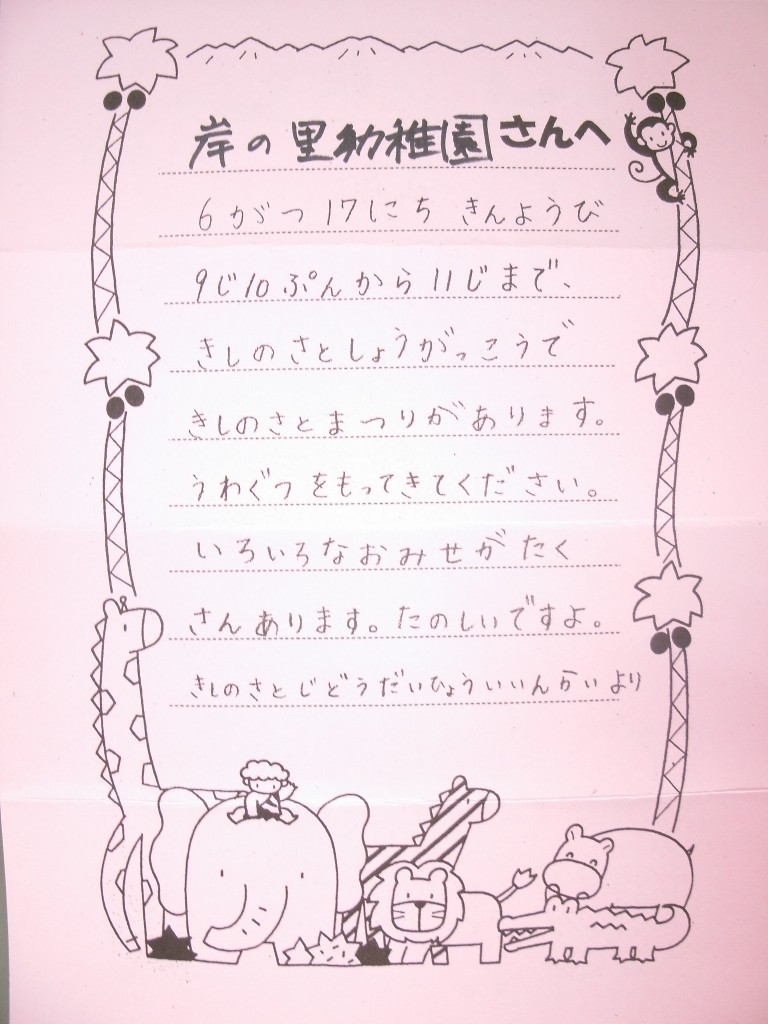 岸の里幼稚園さんへ
6がつ17にち きんようび
9じ10ぷんから11じまで、
きしのさとしょうがっこうで
きしのさとまつりがあります。
うわぐつをもってきてください。
いろいろなおみせがたく
さんあります。たのしいですよ。
きしのさとじどうだいひょういいんかいより